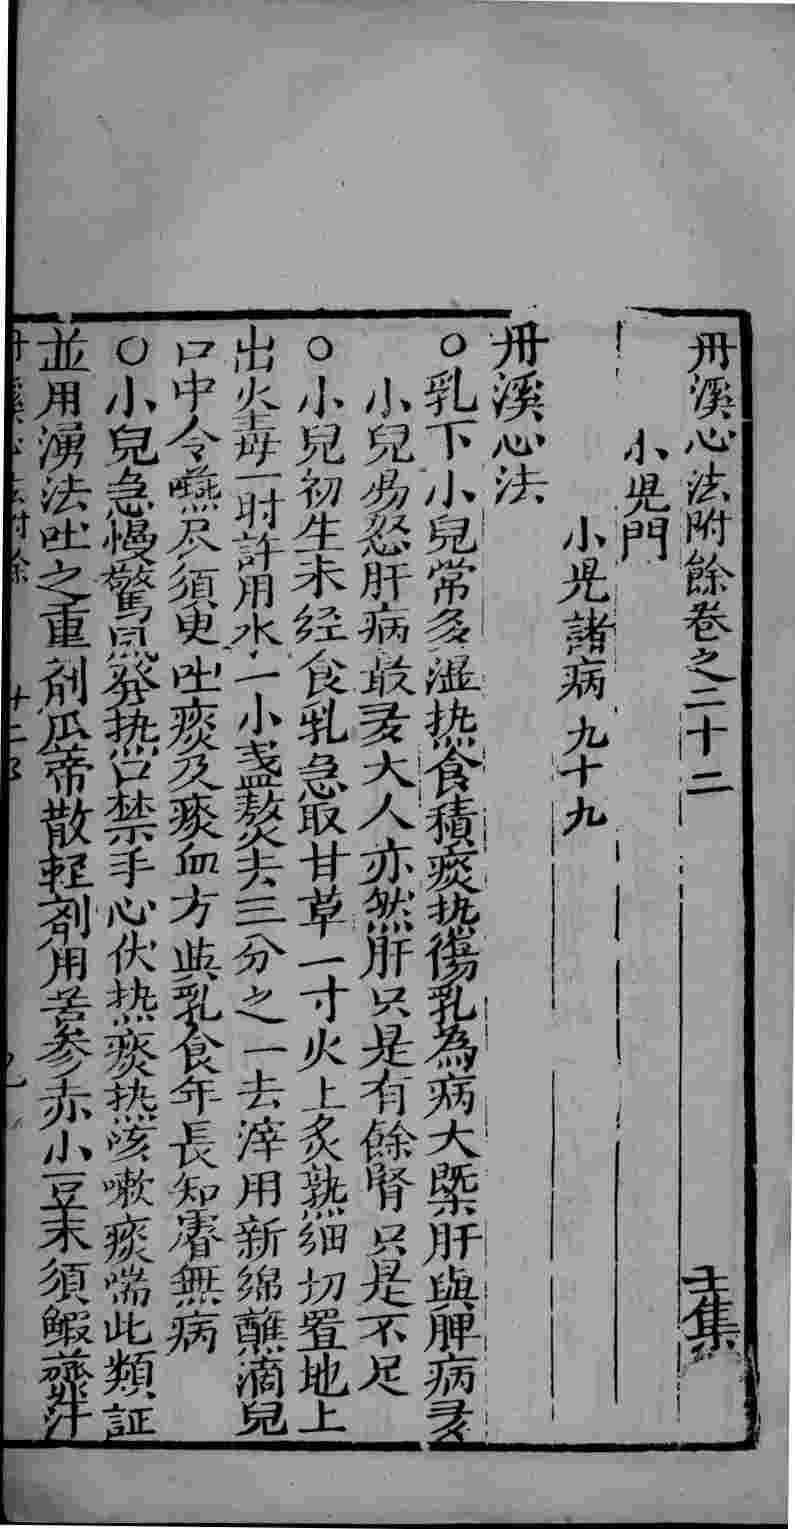 丹溪心法附餘卷之二十二 壬集
小児門
小児諸病 九十九
丹溪心法
○乳下小兒常多湿热食積痰热傷乳為病大槩肝與脾病多
小兒易怒肝病㝡多大人亦然肝只是有餘腎只是不足
○小兒初生未经食乳急取甘草一寸火上炙熟细切置地上
出火毒一时許用水一小盏熬去三分之一去滓用新綿蘸滴兒
口中令嚥尽須更吐痰及瘀血方與乳食年長知睿無病
○小兒急慢驚風癸热口禁手心伏热痰热咳嗽痰喘此類証
並用湧法吐之重剤瓜蒂散軽剤用苦参赤小豆末須鰕虀汁
丹溪心法附餘 廿二